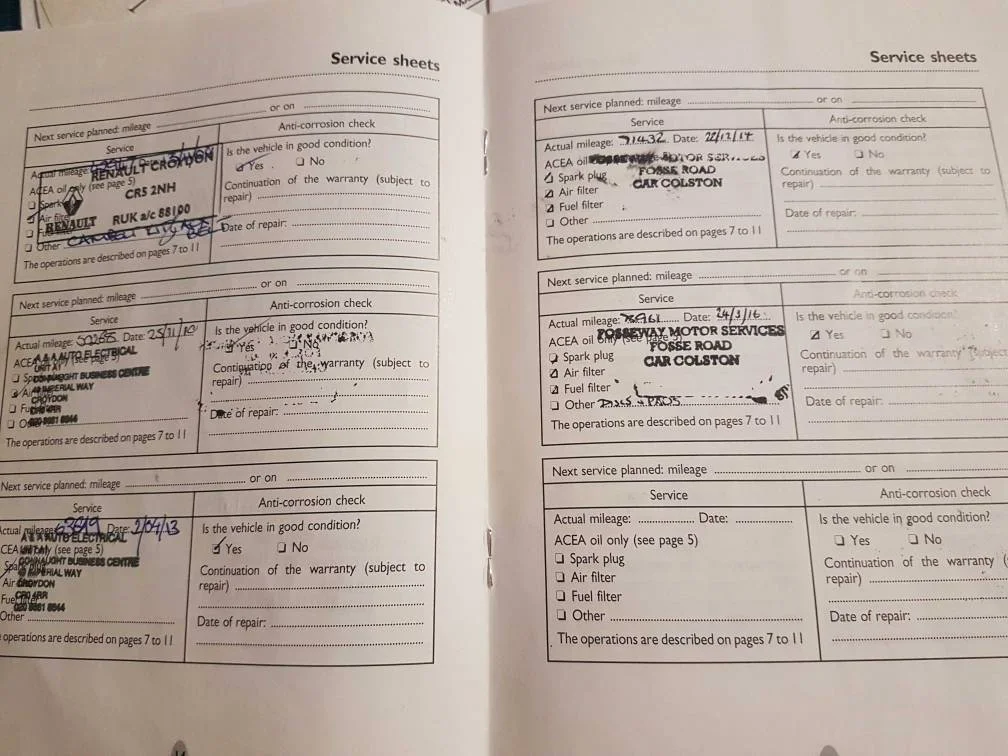 Service sheets
Next service planned: mileage or on
Service
Anti-corrosion check
Actual mileage:
RENAULT CROYDON
ACEA oil only (see page 5)
CR5 2NH
Air filter
RENAULT RUK a/c 88100
Other
The operations are described on pages 7 to 11
Is the vehicle in good condition?
Yes No
Continuation of the warranty (subject to
repair)
Date of repair:
Next service planned: mileage or on
Service
Anti-corrosion check
Actual mileage: Date:
A & A AUTO ELECTRICAL
UNIT A1
CONNAUGHT BUSINESS CENTRE
IMPERIAL WAY
CROYDON
CR0 4RR
020 8681 8844
The operations are described on pages 7 to 11
Is the vehicle in good condition?
Yes No
Continuation of the warranty (subject to
repair)
Date of repair:
Next service planned: mileage or on
Service
Anti-corrosion check
Actual mileage: 63619 Date: 2/04/13
A & A AUTO ELECTRICAL
(see page 5)
CONNAUGHT BUSINESS CENTRE
IMPERIAL WAY
CROYDON
CR0 4RR
020 8681 8844
Other
operations are described on pages 7 to 11
Is the vehicle in good condition?
Yes No
Continuation of the warranty (subject to
repair)
Date of repair:
Service sheets
Next service planned: mileage or on
Service
Anti-corrosion check
Actual mileage: 71432 Date: 22/12/14
ACEA oil FOSSEWAY MOTOR SERVICES
FOSSE ROAD
CAR COLSTON
Spark plug
Air filter
Fuel filter
Other
The operations are described on pages 7 to 11
Is the vehicle in good condition?
Yes No
Continuation of the warranty (subject to
repair)
Date of repair:
Next service planned: mileage or on
Service
Anti-corrosion check
Actual mileage: Date: 24/3/16
FOSSEWAY MOTOR SERVICES
ACEA oil only (see page 5)
FOSSE ROAD
CAR COLSTON
Spark plug
Air filter
Fuel filter
Other DISCS & PADS
The operations are described on pages 7 to 11
Is the vehicle in good condition?
Yes No
Continuation of the warranty (subject
repair)
Date of repair:
Next service planned: mileage or on
Service
Anti-corrosion check
Actual mileage: Date:
ACEA oil only (see page 5)
Spark plug
Air filter
Fuel filter
Other
The operations are described on pages 7 to 11
Is the vehicle in good condition?
Yes No
Continuation of the warranty (
repair)
Date of repair: